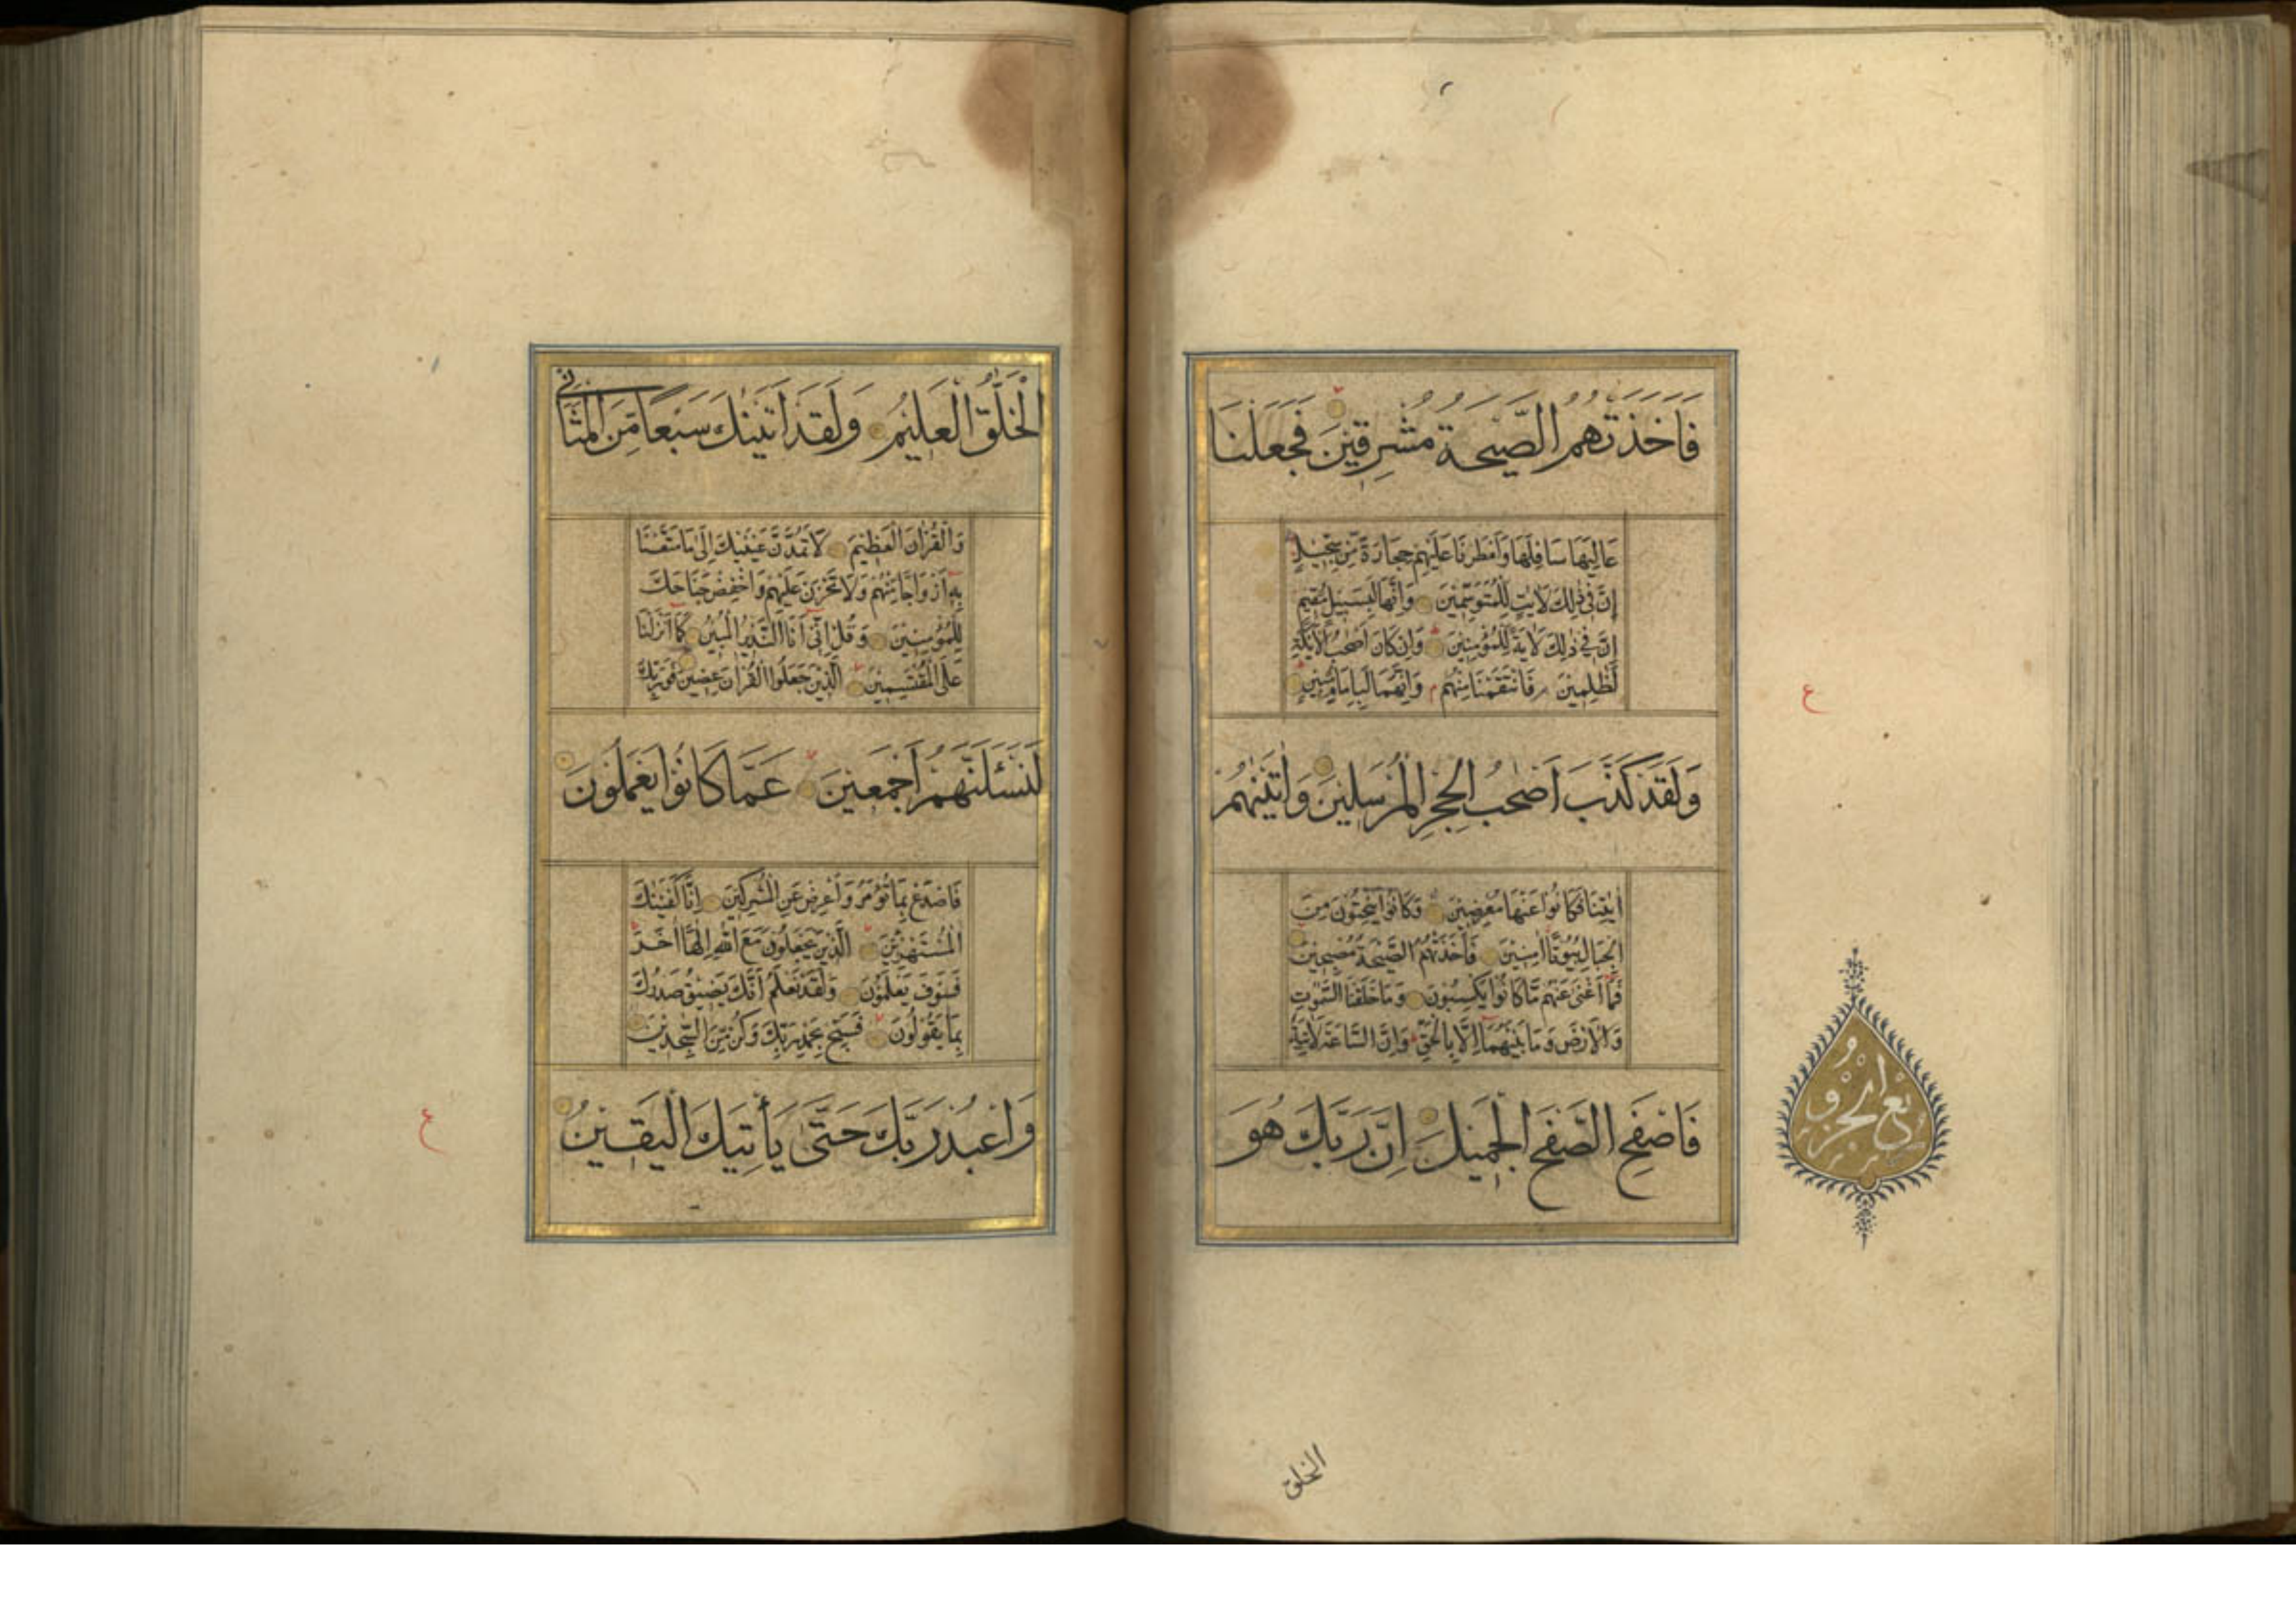 فَاَخَذَتْهُمُ الصَّيْحَةُ مُشْرِقِينَ فَجَعَلْنَا
عَالِيَهَا سَافِلَهَا وَاَمْطَرْنَا عَلَيْهِمْ حِجَارَةً مِنْ سِجِّيلٍ
اِنَّ فِي ذٰلِكَ لَاٰيٰتٍ لِلْمُتَوَسِّمِينَ وَاِنَّهَا لَبِسَبِيلٍ مُقِيمٍ
اِنَّ فِي ذٰلِكَ لَاٰيَةً لِلْمُؤْمِنِينَ وَاِنْ كَانَ اَصْحٰبُ الْاَيْكَةِ
لَظٰلِمِينَ فَانْتَقَمْنَا مِنْهُمْ وَاِنَّهُمَا لَبِاِمَامٍ مُبِينٍ
ع
وَلَقَدْ كَذَّبَ اَصْحٰبُ الْحِجْرِ الْمُرْسَلِينَ وَاٰتَيْنٰهُمْ
اٰيٰتِنَا فَكَانُوا عَنْهَا مُعْرِضِينَ وَكَانُوا يَنْحِتُونَ مِنَ
الْجِبَالِ بُيُوتًا اٰمِنِينَ فَاَخَذَتْهُمُ الصَّيْحَةُ مُصْبِحِينَ
فَمَا اَغْنٰى عَنْهُمْ مَا كَانُوا يَكْسِبُونَ وَمَا خَلَقْنَا السَّمٰوٰتِ
وَالْاَرْضَ وَمَا بَيْنَهُمَا اِلَّا بِالْحَقِّ وَاِنَّ السَّاعَةَ لَاٰتِيَةٌ
فَاصْفَحِ الصَّفْحَ الْجَمِيلَ اِنَّ رَبَّكَ هُوَ
ربع الجزو
الخلق
الْخَلّٰقُ الْعَلِيمُ وَلَقَدْ اٰتَيْنٰكَ سَبْعًا مِنَ الْمَثَانِي
وَالْقُرْاٰنَ الْعَظِيمَ لَا تَمُدَّنَّ عَيْنَيْكَ اِلٰى مَا مَتَّعْنَا
بِهِ اَزْوَاجًا مِنْهُمْ وَلَا تَحْزَنْ عَلَيْهِمْ وَاخْفِضْ جَنَاحَكَ
لِلْمُؤْمِنِينَ وَقُلْ اِنِّي اَنَا النَّذِيرُ الْمُبِينُ كَمَا اَنْزَلْنَا
عَلَى الْمُقْتَسِمِينَ الَّذِينَ جَعَلُوا الْقُرْاٰنَ عِضِينَ فَوَرَبِّكَ
لَنَسْئَلَنَّهُمْ اَجْمَعِينَ عَمَّا كَانُوا يَعْمَلُونَ
فَاصْدَعْ بِمَا تُؤْمَرُ وَاَعْرِضْ عَنِ الْمُشْرِكِينَ اِنَّا كَفَيْنٰكَ
الْمُسْتَهْزِئِينَ الَّذِينَ يَجْعَلُونَ مَعَ اللّٰهِ اِلٰهًا اٰخَرَ
فَسَوْفَ يَعْلَمُونَ وَلَقَدْ نَعْلَمُ اَنَّكَ يَضِيقُ صَدْرُكَ
بِمَا يَقُولُونَ فَسَبِّحْ بِحَمْدِ رَبِّكَ وَكُنْ مِنَ السّٰجِدِينَ
وَاعْبُدْ رَبَّكَ حَتّٰى يَأْتِيَكَ الْيَقِينُ
ع